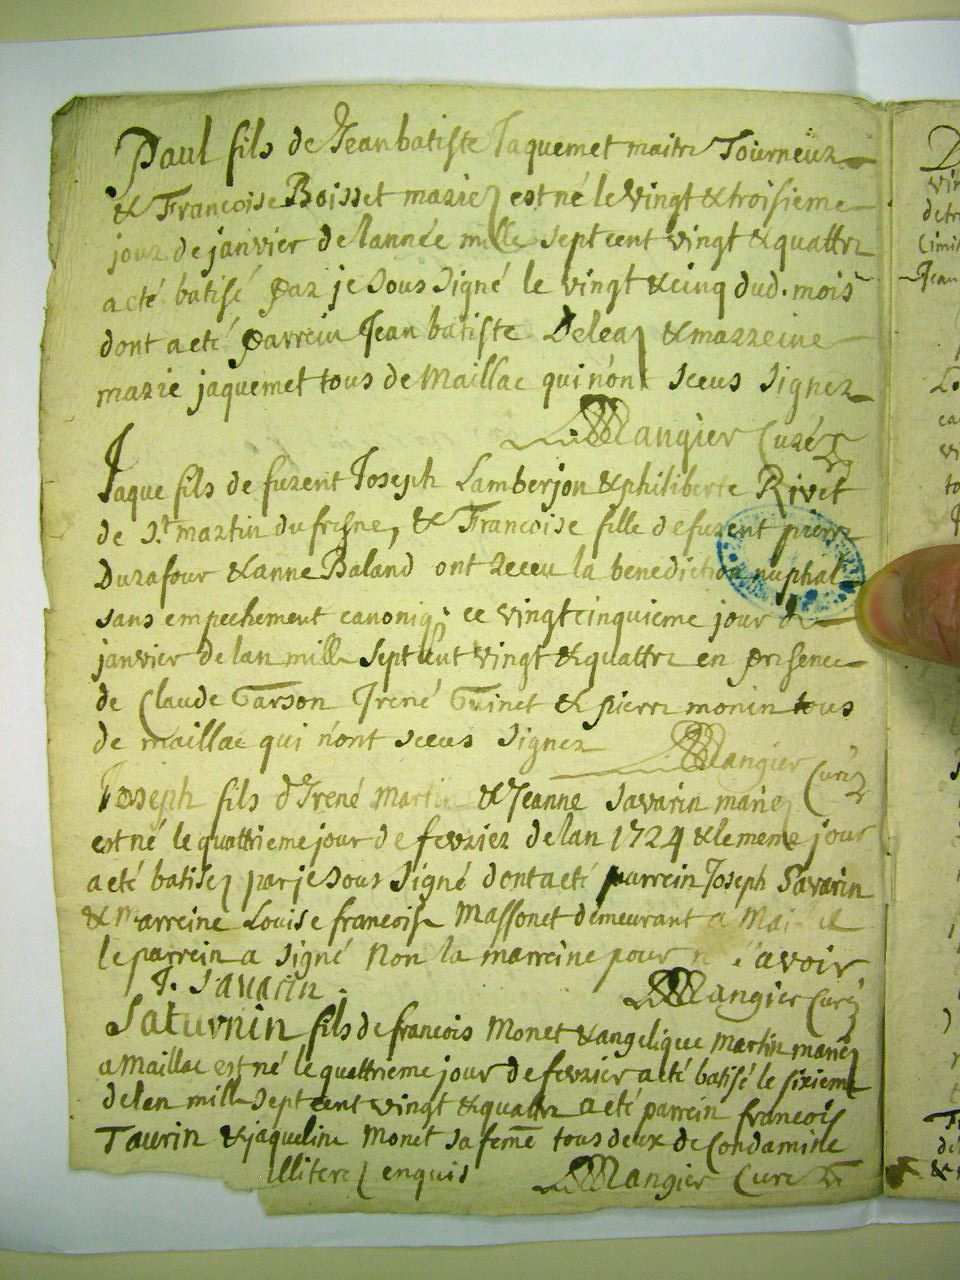 Paul fils de Jeanbatiste Jaquemet maitre Tourneur
& Francoise Boisset mariez est né le vingt & troisieme
jour de janvier de lannée mille sept cent vingt & quattre
a eté batisé par je sous signé le vingt & cinq dud. mois
dont a eté parrein Jean batiste & marreine
marie jaquemet tous de Maillac qui n'ont sceus signer
Mangier Curé
Jaque fils de fuzent Joseph Lamberjon & philiberte Rivet
de St. martin du fresne, & Francoise fille de fuzent pierre
Durafour & anne Baland ont receu la benediction nuphal
sans empechement canoniq; ce vingt cinquieme jour de
janvier de lan mille sept cent vingt & quattre en presence
de Claude Garson Irené Guinet & pierre monin tous
de maillac qui n'ont sceus signer Mangier Curé
Joseph fils d'Irené Martin & Jeanne Savarin mariez
est né le quattrieme jour de fevrier de lan 1724 & le meme jour
a eté batisez par je sous signé dont a eté parrein Joseph Savarin
& Marreine Louise francoise Massonet demeurant a
le parrein a signé Non la marreine pour avoir
J. Savarin. Mangier Curé
Saturnin fils de francois Monet & angelique Martin mariez
a Maillac est né le quattrieme jour de fevrier a eté batisé le sixieme
de lan mille sept cent vingt & quattre a eté parrein francois
Taurin & jaqueline Monet sa feme tous deux de Condamine
illiterez enquis Mangier Curé